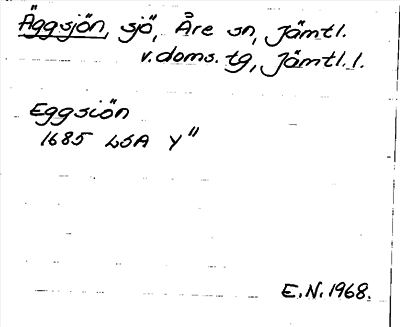 Äggsjön, sjö, Åre sn, Jämtl.
v.doms.tg, Jämtl.l.
Eggsiön
1685 LSA Y"
E.N.1968.